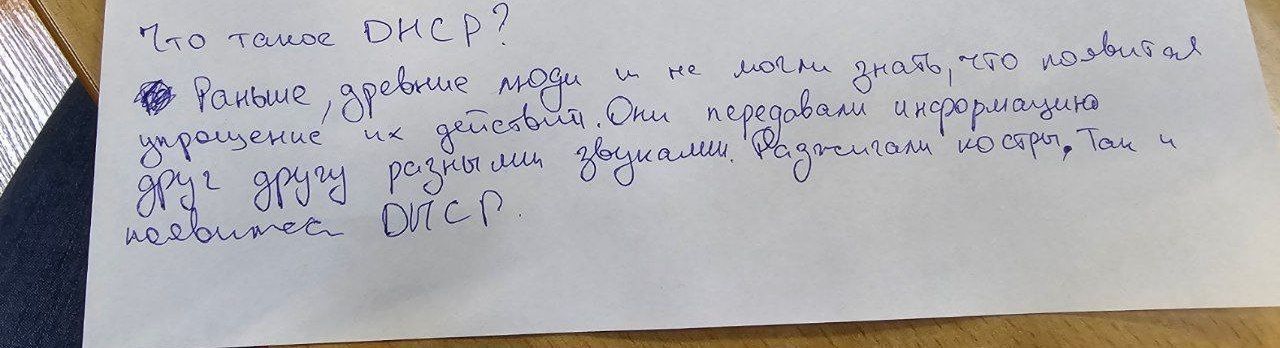 Что такое DMCP?
Раньше, древние люди и не могли знать, что появится
упрощение их действий. Они передавали информацию
друг другу разными звуками. Разжигали костры. Так и
появится